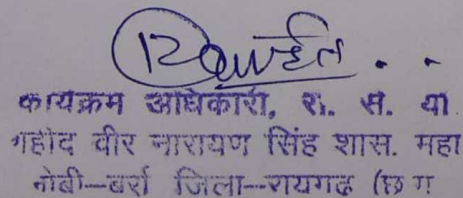 कार्यक्रम अधिकारी, रा. से. यो
शहीद वीर नारायण सिंह शास. महा
जोबी–बर्रा जिला–रायगढ (छ ग